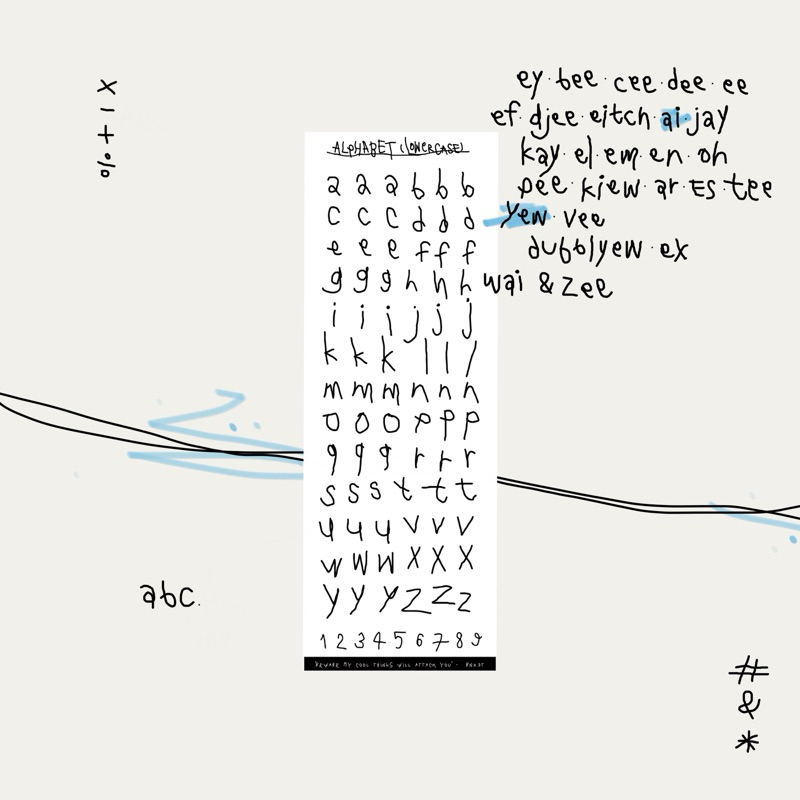 x - + %
ey · bee · cee · dee · ee
ef · djee · eitch · ai · jay
kay · el · em · en · oh
pee · kiew · ar · ES · tee
yew · vee
dubblyew · ex
wai & zee
ALPHABET (LOWERCASE)
a a a b b b
c c c d d d
e e e f f f
g g g h h h
i i i j j j
k k k l l l
m m m n n n
o o o p p p
q q q r r r
s s s t t t
u u u v v v
w w w x x x
y y y z z z
1 2 3 4 5 6 7 8 9
"BEWARE MY COOL THINGS WILL ATTACK YOU" -
abc.
#
&
*